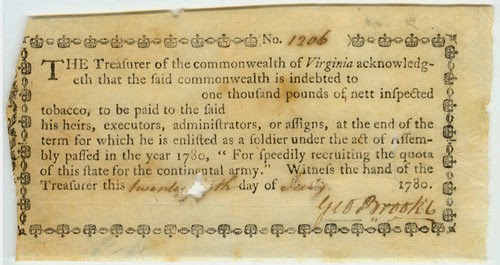 No. 1206
THE Treasurer of the commonwealth of Virginia acknowledg-
eth that the said commonwealth is indebted to
one thousand pounds of nett inspected
tobacco, to be paid to the said
his heirs, executors, administrators, or assigns, at the end of the
term for which he is enlisted as a soldier under the act of Assem-
bly passed in the year 1780, “ For speedily recruiting the quota
of this state for the continental army.” Witness the hand of the
Treasurer this twenty day of July 1780.
Geo Brooke